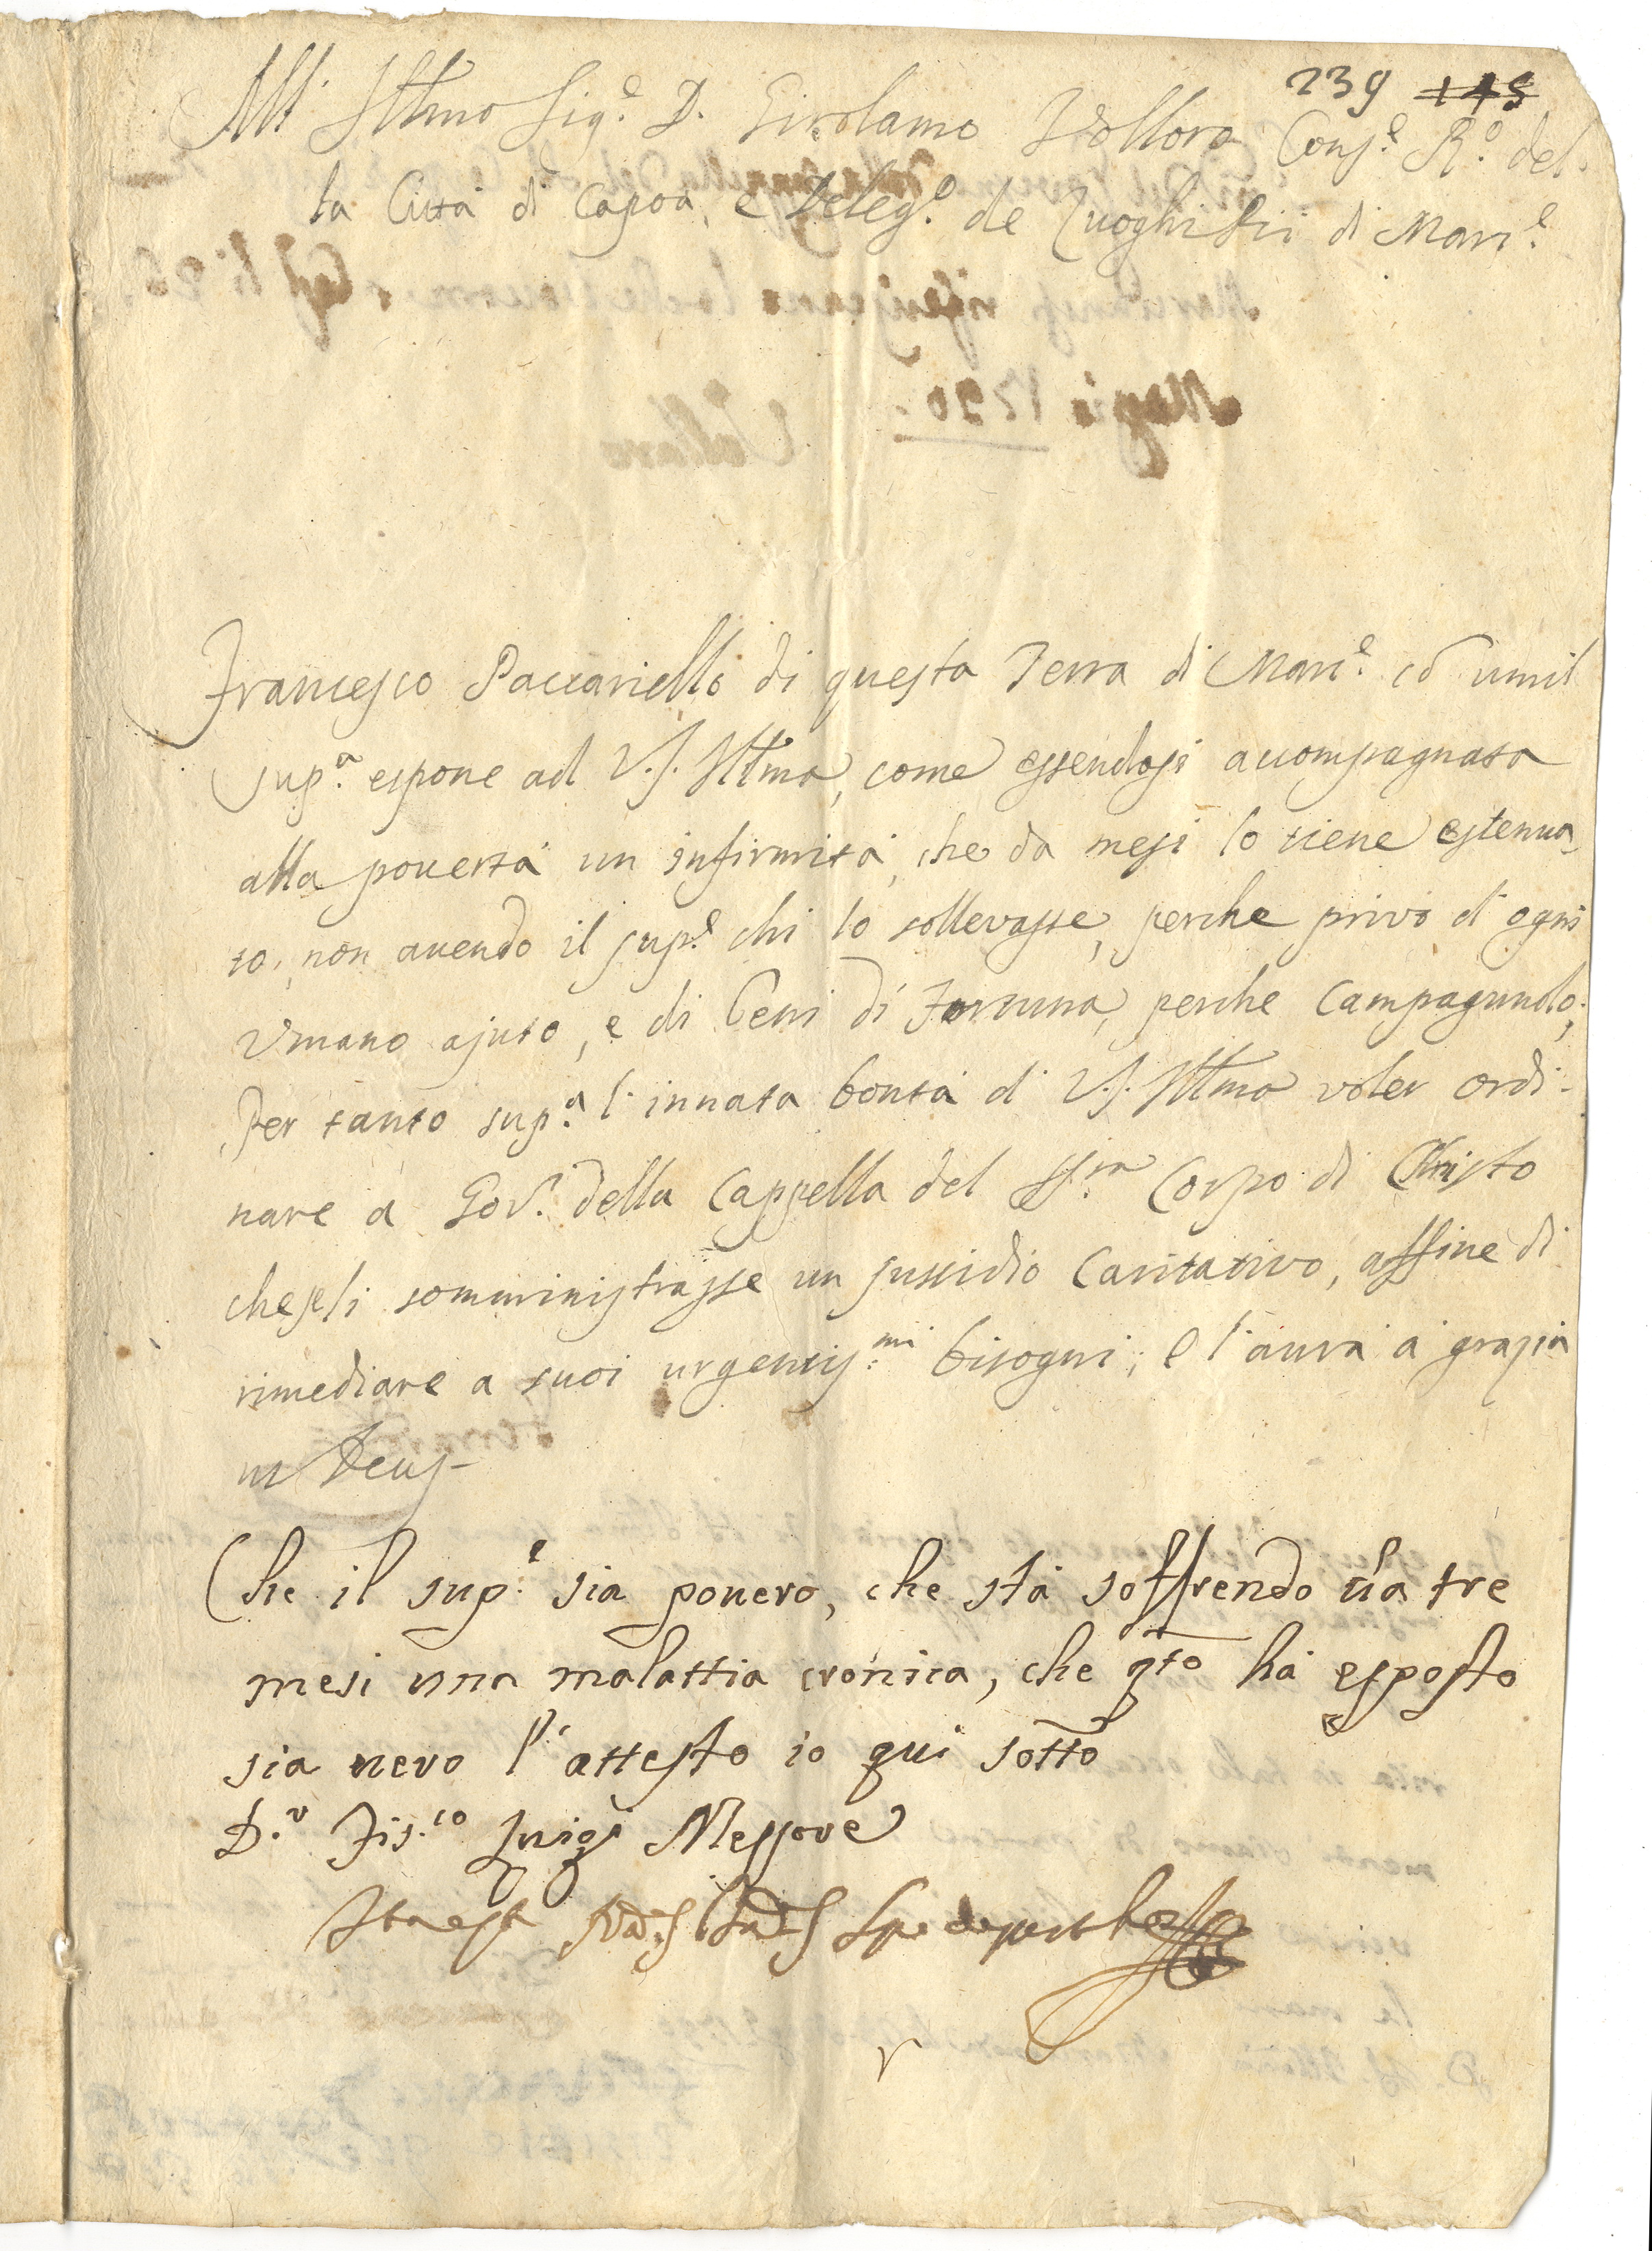 239 145
All' Ill͞mo Sig.e D. Girolamo Vollaro Cons.e R.o del-
la Città di Capoa, e Deleg.o de Luoghi Pii di Marc.e
Francesco Paccariello di questa Terra di Marc.e cō umil
sup.a espone ad V.S. Ill͞ma, come essendosi accompagnata
alla povertà un infirmità, che da mesi lo tiene estenua-
to, non avendo il sup.e chi lo sollevasse, perche privo d'ogni
Umano ajuto, e di beni di Fortuna, perche Campagnuolo;
Per tanto sup.a l'innata bontà di V.S. Ill͞ma voler ordi-
nare a Gov.i della Cappella del SS.mo Corpo di Christo
che seli somministrasse un sussidio Caritativo, affine di
rimediare a suoi urgentis.mi bisogni, e l'avrà à grazia
ut Deus
Che il sup.e sia povero, che stà soffrendo da tre
mesi una malattia cronica, che q͞to hà esposto
sia vero l'attesto io qui sotto
D.r Fis.co Luigi Messore
Ita est